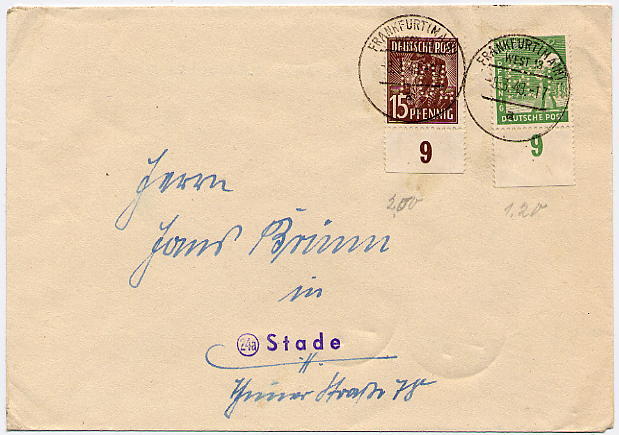 FRANKFURT(MAIN)
FRANKFURT(MAIN)
WEST 13
DEUTSCHE POST
15 PFENNIG
DEUTSCHE POST
9
9
2,00
1.20
Herrn
Hans Brümm
in
24a Stade
Straße 78